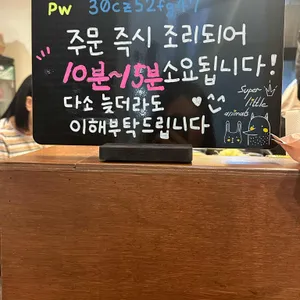 PW
주문 즉시 조리되어
10분~15분 소요됩니다!
다소 늦더라도
이해부탁드립니다
Super
little
animals